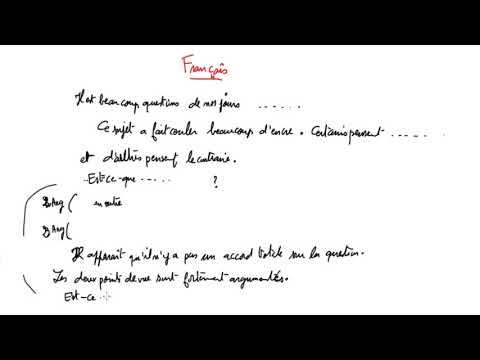 Français
Il est beaucoup questions de nos jours ......
Ce sujet a fait couler beaucoup d'encre. Certains pensent ......
et d'autres pensent le contraire.
Est-ce-que ..... ?
2 Arg ( en outre
2 Arg (
Il apparait qu'il n'y a pas un accord total sur la question.
Les deux points de vue sont fortement argumentés.
Est-ce